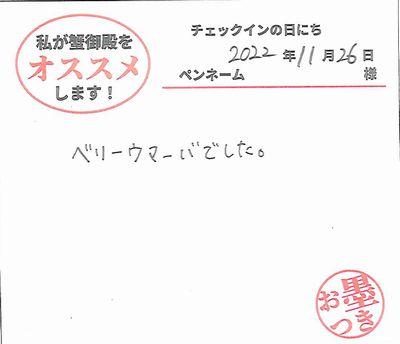 私が蟹御殿を
オススメ
します！
チェックインの日にち
2022年11月26日
ペンネーム 様
ベリーウマーバでした。
お墨つき